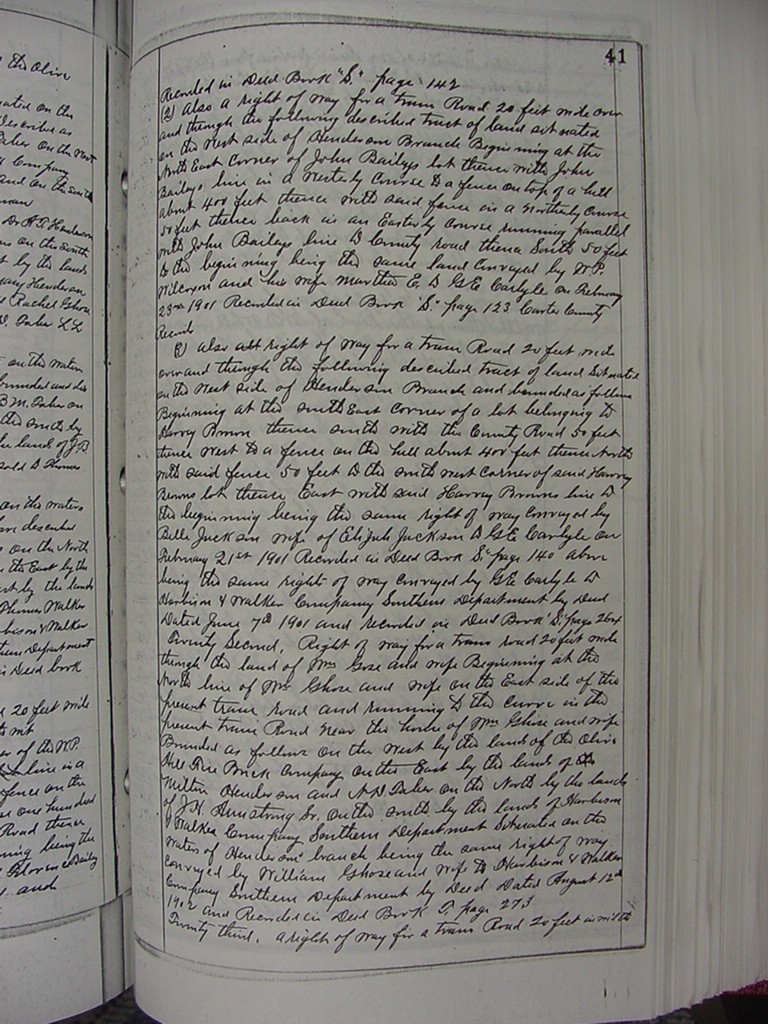 the Olive
ated on the
described as
aber on the West
Company
and on the south
Dr A.T. Henderson
on the south
t by the lands
Henderson
Rachel Ghose
on the waters
bounded and
B M. Taber on
the south by
the land of J.B
sold to Thomas
on the waters
described
on the North
the East by the
by the lands
Thomas Walker
Harbison & Walker
Department
in Deed book
20 feet wide
er of the W.P.
line in a
fence on the
one hundred
Road thence
being the
Florence Bailey
and
41
Recorded in Deed Book "S." page 142
(2) also a right of way for a tram Road 20 feet wide over
and through the following described tract of land situated
on the West side of Henderson Branch Beginning at the
North East Corner of John Baileys lot thence with John
Baileys line in a Westerly Course to a fence on top of a hill
about 400 feet thence with said fence in a Northerly Course
50 feet thence back in an Easterly course running parallel
with John Baileys line to County road thence South 50 feet
to the beginning being the same land Conveyed by W.P.
Wilcoxon and his wife Martha E. to G.E. Carlyle on February
23rd 1901 Recorded in Deed Book "S." page 123 Carter County
Records
also right of way for a tram Road 20 feet wide
over and through the following described tract of land situated
on the West side of Henderson Branch and bounded as follows
Beginning at the south East corner of a lot belonging to
Harvy Brown thence south with the County Road 50 feet
thence West to a fence on the hill about 400 feet thence North
with said fence 50 feet to the south west corner of said Harvy
Browns lot thence East with said Harvey Browns line to
the beginning being the same right of way conveyed by
Belle Jackson wife of Elijah Jackson to G.E. Carlyle on
February 21st 1901 Recorded in Deed Book S." page 140 above
being the same right of way conveyed by G.E. Carlyle to
Harbison & Walker Company Southern Department by Deed
Dated June 7th 1901 and recorded in Deed Book S." page 264
Twenty Second. Right of way for a tram road 20 feet wide
through the land of Wm Gose and wife Beginning at the
North line of Wm Ghose and wife on the East side of the
present tram road and running to the Curve in the
present tram Road near the house of Wm Ghose and wife
Bounded as follows on the West by the land of the Olive
Hill Fire Brick Company on the East by the lands of
Milton Henderson and N.D. Taber on the North by the lands
of J.H. Armstrong Sr. on the south by the lands of Harbison
& Walker Company Southern Department Situated on the
waters of Henderson branch being the same right of way
conveyed by William Ghose and wife to Harbison & Walker
Company Southern Department by Deed Dated August 12th
1902 and Recorded in Deed Book T, page 273
Twenty third, a right of way for a tram Road 20 feet in width